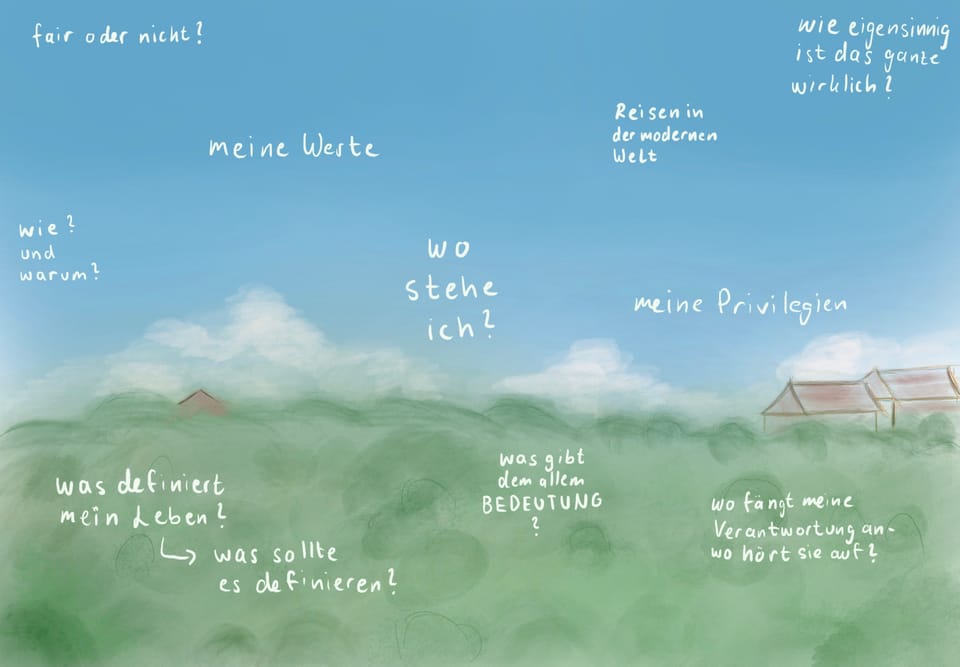 fair oder nicht?
wie eigensinnig
ist das ganze
wirklich?
Reisen in
der modernen
Welt
meine Werte
wie?
und
warum?
wo
stehe
ich?
meine Privilegien
was definiert
mein Leben?
was sollte
es definieren?
was gibt
dem allem
BEDEUTUNG
?
wo fängt meine
Verantwortung an-
wo hört sie auf?